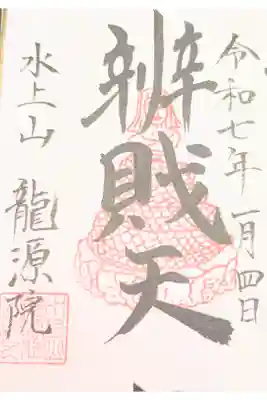 令和七年一月四日
辨賎天
水上山 龍源院